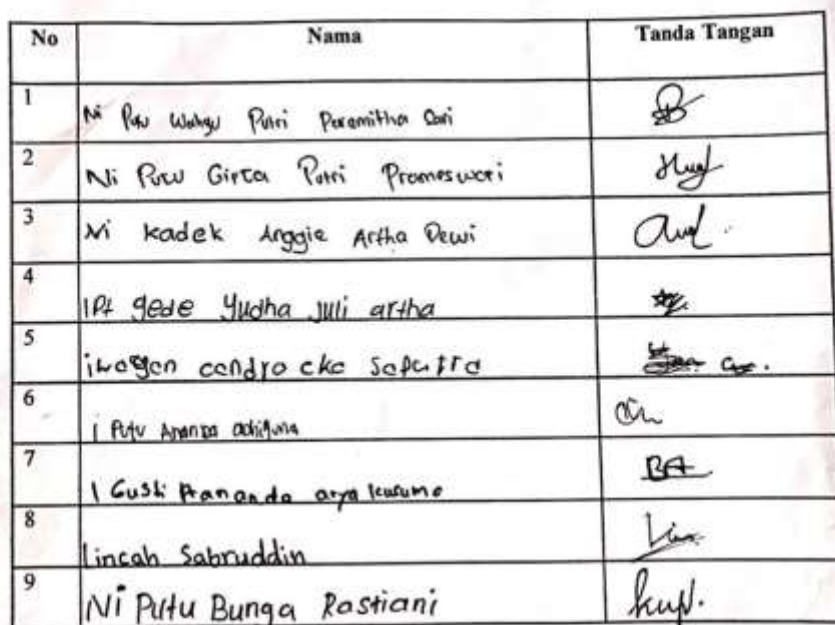 No Nama Tanda Tangan
1 Ni Putu Wahyu Putri Paramitha Sari
2 Ni Putu Girta Putri Prameswari
3 Ni Kadek Anggie Artha Dewi
4 IPt gede Yudha Juli artha
5 candra eka Saputra
6 I Putu Ananta adiguna
7 I Gusti Prananda arya kusuma
8 lincah Sabruddin
9 Ni Putu Bunga Rastiani